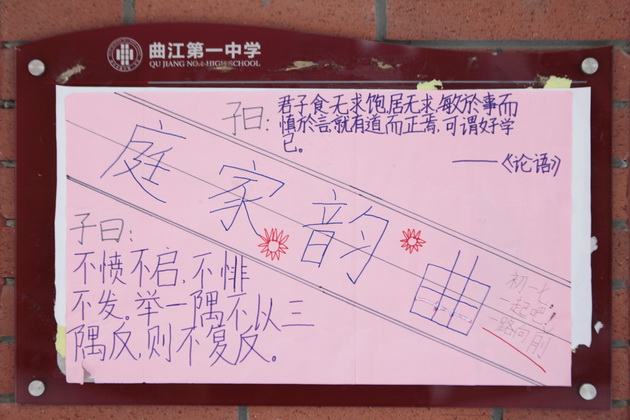 曲江第一中学
QU JIANG NO.1 HIGH SCHOOL
子曰:
君子食无求饱居无求,敏於事而
慎於言,就有道而正焉,可谓好学
已。
——《论语》
庭家韵曲
子曰:
不愤不启,不悱
不发。举一隅不以三
隅反,则不复反。
初一七,
一起吧,
一路向前